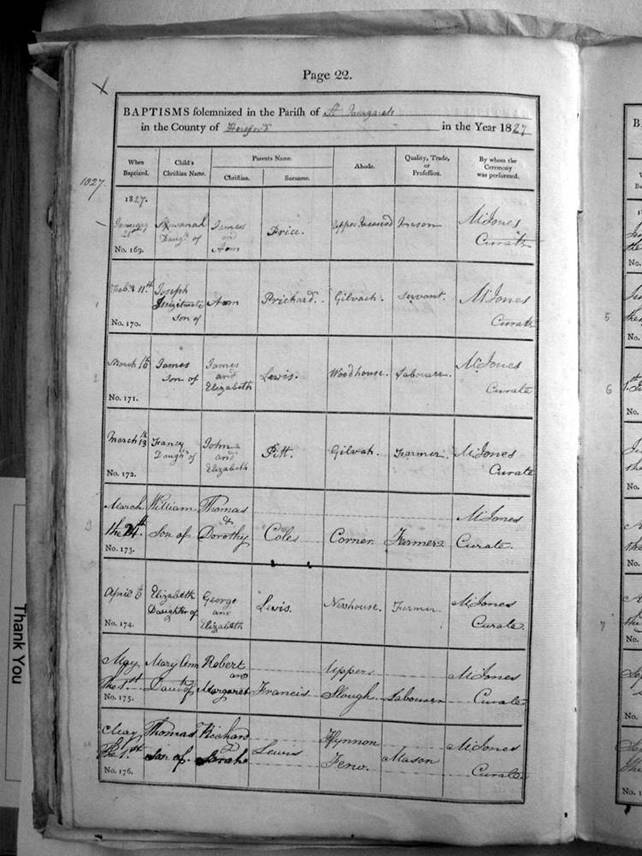 Page 22.
BAPTISMS solemnized in the Parish of St Margarets
in the County of Hereford in the Year 1827
When Baptized.
Child's Christian Name.
Parents Name.
Christian.
Surname.
Abode.
Quality, Trade, or Profession.
By whom the Ceremony was performed.
1827
1827.
January
Daugr of
James
and
Ann
Price.
Upper
Mc Jones
Curate
No. 169.
Febr 11th
Joseph
Son of
Ann
Prichard.
Gilvach.
Servant.
Mc Jones
Curate
No. 170.
March
James
Son of
James
and
Elizabeth
Lewis.
Woodhouse.
Labourer.
Mc Jones
Curate
No. 171.
March 13
Fancy
Daugr of
John
and
Elizabeth
Pitt.
Gilvah.
Farmer.
Mc Jones
Curate
No. 172.
March
the 24th
William
Son of
Thomas
&
Dorothy
Coles
Corner
Farmer
Mc Jones
Curate.
No. 173.
April
Elizabeth
Daughter of
George
and
Elizabeth
Lewis.
Newhouse.
Farmer
Mc Jones
Curate.
No. 174.
May
the 1st
Mary Ann
Robert
and
Margaret
Francis
Upper
Slough.
Labourer
Mc Jones
Curate
No. 175.
May
the 1st
Thomas
Son of
Richard
&
Sarah
Lewis
Mason
Mc Jones
Curate.
No. 176.
Thank You
B
No.
No.
5
No.
6
No.
No.
No.
7
No.
No.